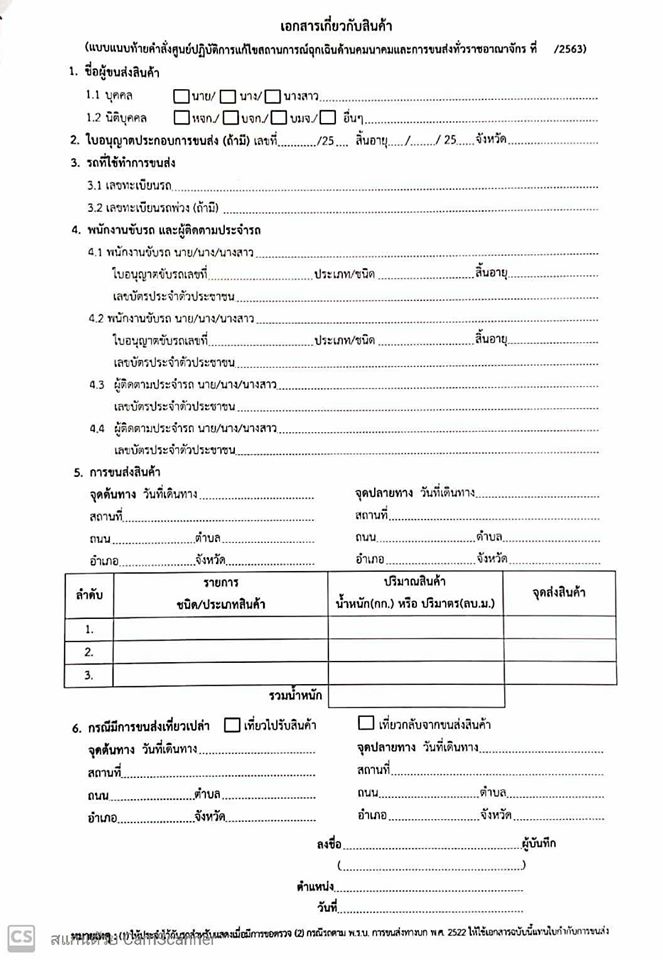 เอกสารเกี่ยวกับสินค้า
(แบบแนบท้ายคำสั่งศูนย์ปฏิบัติการแก้ไขสถานการณ์ฉุกเฉินด้านคมนาคมและการขนส่งทั่วราชอาณาจักร ที่ /2563)
1. ชื่อผู้ขนส่งสินค้า
1.1 บุคคล นาย/ นาง/ นางสาว
1.2 นิติบุคคล หจก./ บจก./ บมจ./ อื่นๆ
2. ใบอนุญาตประกอบการขนส่ง (ถ้ามี) เลขที่............/25.... สิ้นอายุ...../......../ 25.....จังหวัด
3. รถที่ใช้ทำการขนส่ง
3.1 เลขทะเบียนรถ
3.2 เลขทะเบียนรถพ่วง (ถ้ามี)
4. พนักงานขับรถ และผู้ติดตามประจำรถ
4.1 พนักงานขับรถ นาย/นาง/นางสาว
ใบอนุญาตขับรถเลขที่ ประเภท/ชนิด สิ้นอายุ
เลขบัตรประจำตัวประชาชน
4.2 พนักงานขับรถ นาย/นาง/นางสาว
ใบอนุญาตขับรถเลขที่ ประเภท/ชนิด สิ้นอายุ
เลขบัตรประจำตัวประชาชน
4.3 ผู้ติดตามประจำรถ นาย/นาง/นางสาว
เลขบัตรประจำตัวประชาชน
4.4 ผู้ติดตามประจำรถ นาย/นาง/นางสาว
เลขบัตรประจำตัวประชาชน
5. การขนส่งสินค้า
จุดต้นทาง วันที่เดินทาง จุดปลายทาง วันที่เดินทาง
สถานที่ สถานที่
ถนน ตำบล ถนน ตำบล
อำเภอ จังหวัด อำเภอ จังหวัด
ลำดับ รายการ ปริมาณสินค้า จุดส่งสินค้า
ชนิด/ประเภทสินค้า น้ำหนัก(กก.) หรือ ปริมาตร(ลบ.ม.)
1.
2.
3.
รวมน้ำหนัก
6. กรณีมีการขนส่งเที่ยวเปล่า เที่ยวไปรับสินค้า เที่ยวกลับจากขนส่งสินค้า
จุดต้นทาง วันที่เดินทาง จุดปลายทาง วันที่เดินทาง
สถานที่ สถานที่
ถนน ตำบล ถนน ตำบล
อำเภอ จังหวัด อำเภอ จังหวัด
ลงชื่อ ผู้บันทึก
( )
ตำแหน่ง
วันที่
หมายเหตุ : (1) ให้ประจำไว้กับรถสำหรับแสดงเมื่อมีการขอตรวจ (2) กรณีรถตาม พ.ร.บ. การขนส่งทางบก พ.ศ. 2522 ให้ใช้เอกสารฉบับนี้แทนใบกำกับการขนส่ง
CS สแกนด้วย CamScanner